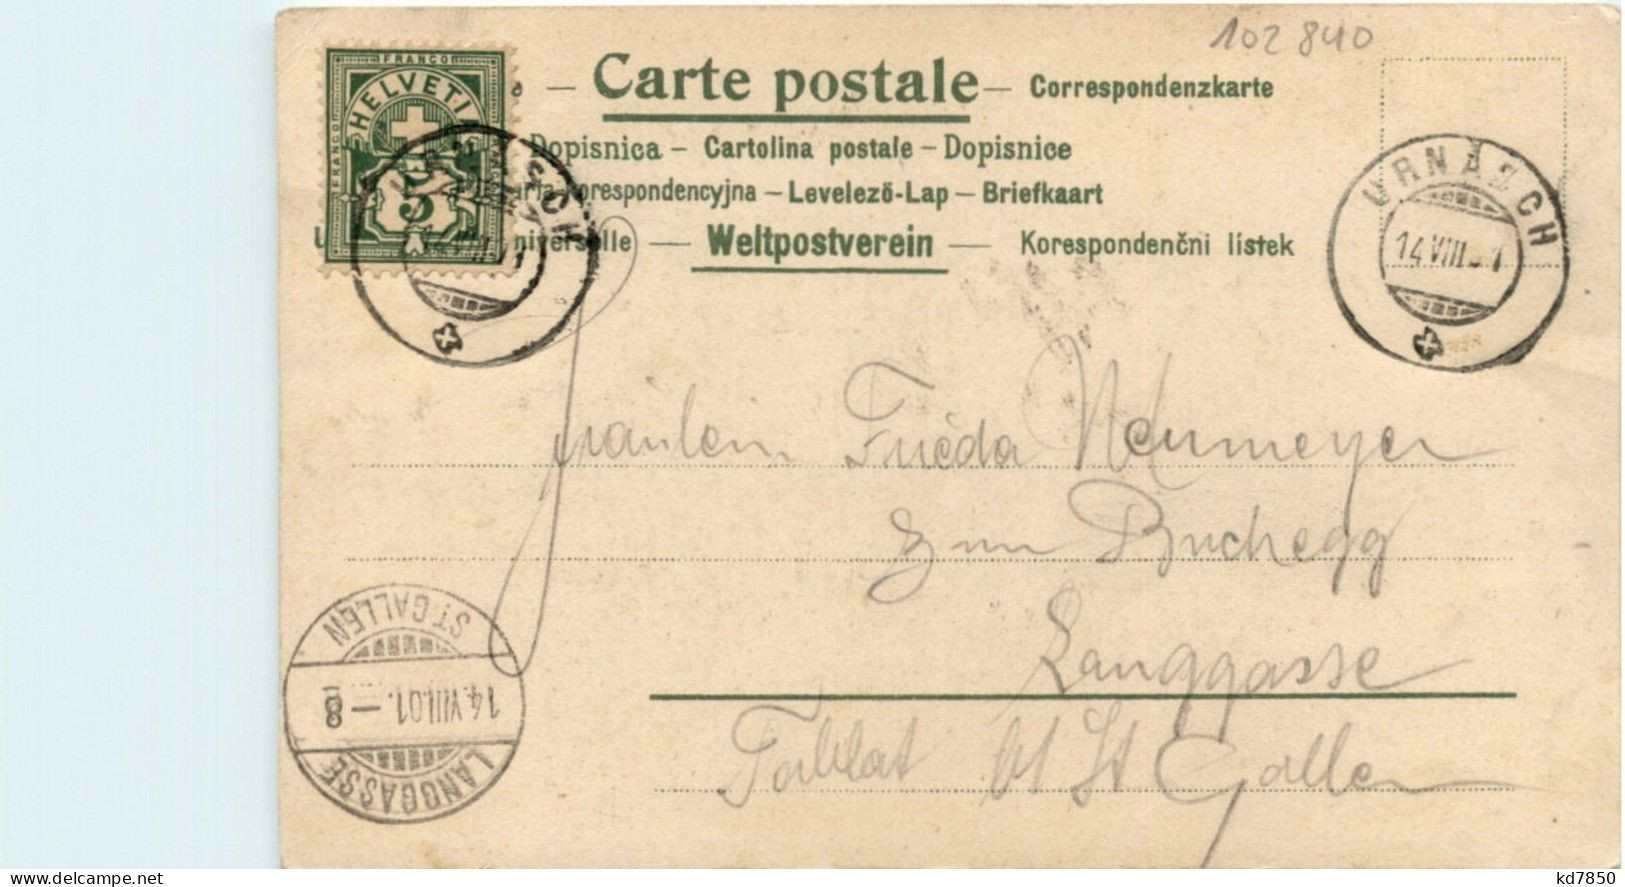 102 840
FRANCO
HELVETI
FRANCO
5
Carte postale — Correspondenzkarte
Dopisnica — Cartolina postale — Dopisnice
korespondencyjna — Levelező-Lap — Briefkaart
universelle — Weltpostverein — Korespondenční lístek
URNÄSCH
14 VIII 01
URNÄSCH
14 VIII 01
Fräulein Frieda Neumeyer
zum Buchegg
Langgasse
Tablat b/ St Gallen
ST. GALLEN
14.VIII.01.–8
LANGGASSE
delcampe.net
kd7850